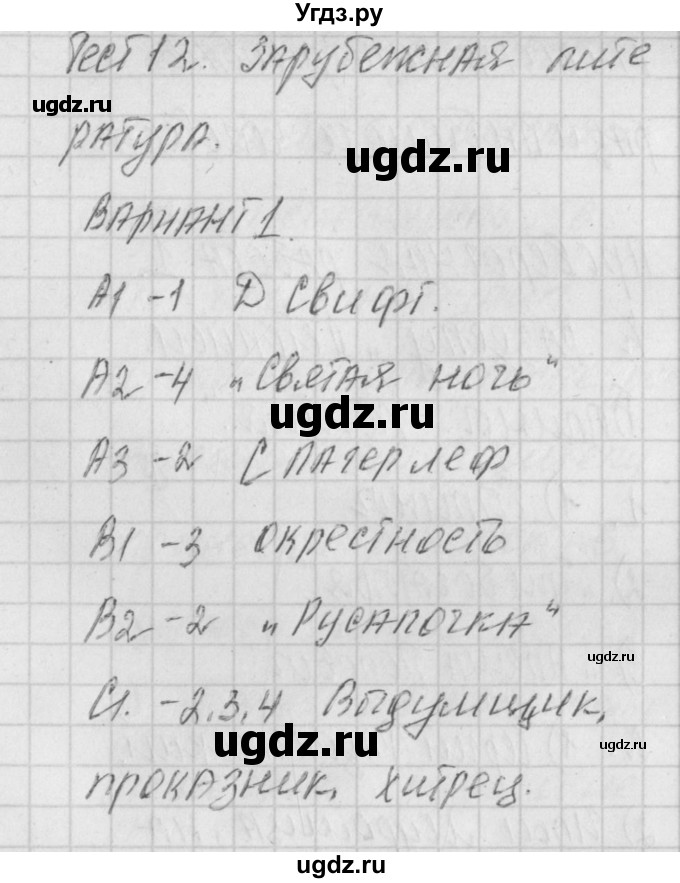 Угдз.ру
Тест 12. Зарубежная лите
ugdz.ru
ратура.
ugdz.ru
Вариант 1.
А1 -1 Д Свифт.
А2 -4 „Святая ночь"
ugdz.ru
А3 -2 С Лагерлеф
В1 -3 окрестность
В2 -2 „Русалочка"
ugdz.ru
С1. -2,3,4 Выдумщик,
ugdz.ru
ugdz.ru
проказник, хитрец.
ugdz.ru